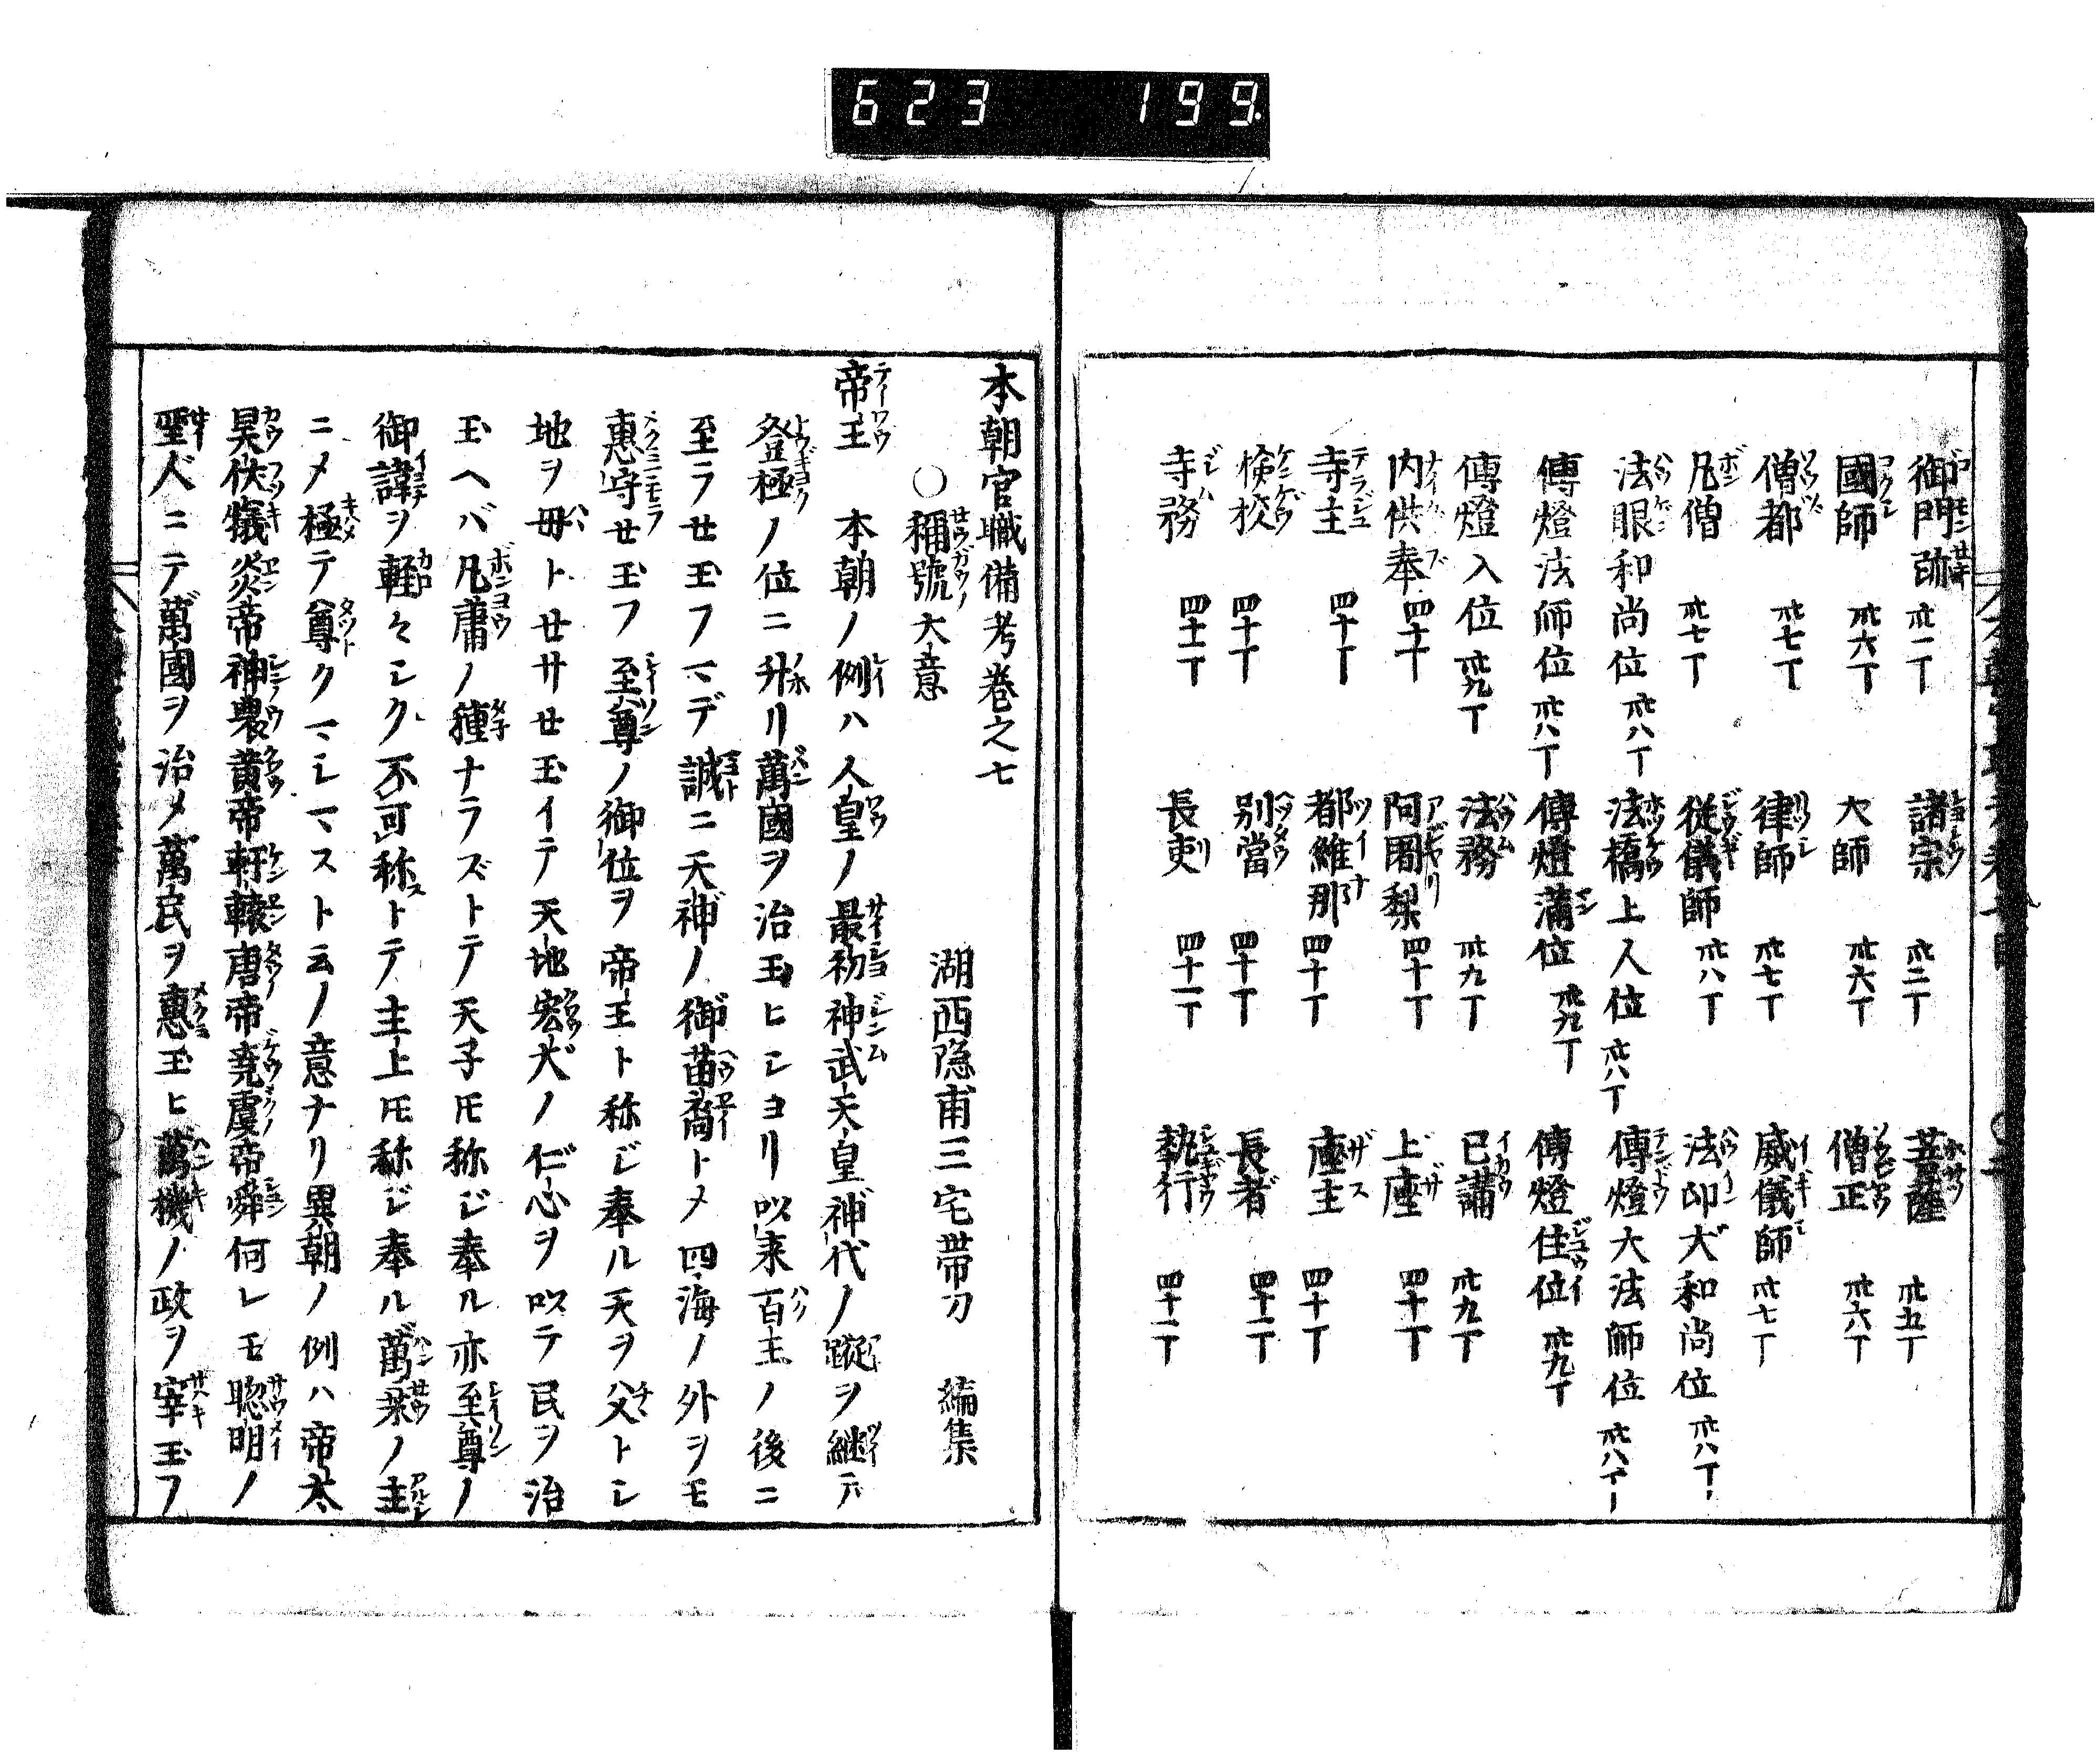 623 199
御門跡 卅一丁 諸宗 卅二丁 菩薩 卅五丁
國師 卅六丁 大師 卅六丁 僧正 卅六丁
僧都 卅七丁 律師 卅七丁 威儀師 卅七丁
凡僧 卅七丁 従儀師 卅八丁 法印大和尚位 卅八丁
法眼和尚位 卅八丁 法橋上人位 卅八丁 傳燈大法師位 卅八丁
傳燈法師位 卅八丁 傳燈満位 卅九丁 傳燈住位 卅九丁
傳燈入位 卅九丁 法務 卅九丁 已講 卅九丁
内供奉 四十丁 阿闍梨 四十丁 上座 四十丁
寺主 四十丁 都維那 四十丁 座主 四十丁
検校 四十丁 別當 四十丁 長者 四十一丁
寺務 四十一丁 長吏 四十一丁 執行 四十一丁
本朝官職備考巻之七
湖西隠甫三宅帯刀 編集
○稱號大意
帝王 本朝ノ例ハ人皇ノ最初神武天皇神代ノ蹤ヲ継テ
登極ノ位ニ升リ萬國ヲ治玉ヒシヨリ以来百主ノ後ニ
至ラせ玉フマデ誠ニ天神ノ御苗裔トメ四海ノ外ヲモ
恵守せ玉フ至尊ノ御位ヲ帝王ト称ジ奉ル天ヲ父トシ
地ヲ毋トせサせ玉イテ天地宏大ノ仁心ヲ以テ民ヲ治
玉ヘバ凡庸ノ種ナラズトテ天子モ称ジ奉ル亦至尊ノ
御諱ヲ軽々シク不可称トテ主上モ称ジ奉ル萬乗ノ主
ニメ極テ尊クマシマスト云ノ意ナリ異朝ノ例ハ帝太
昊伏犧炎帝神農黄帝軒轅唐帝堯虞帝舜何レモ聡明ノ
聖人ニテ萬國ヲ治メ萬民ヲ惠玉ヒ萬機ノ政ヲ宰玉フ